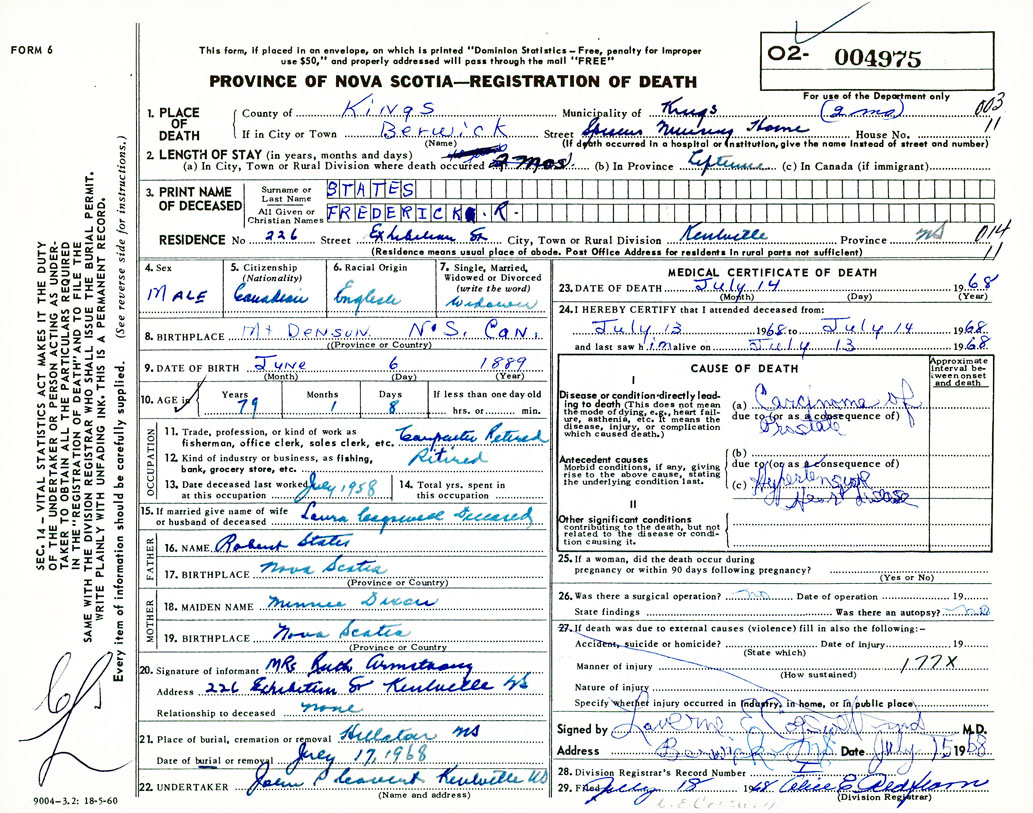 FORM 6
This form, if placed in an envelope, on which is printed "Dominion Statistics – Free, penalty for improper
use $50," and properly addressed will pass through the mail "FREE"
PROVINCE OF NOVA SCOTIA—REGISTRATION OF DEATH
O2- 004975
For use of the Department only
(2 mo) 003
11
1. PLACE OF DEATH
County of Kings Municipality of Kings
If in City or Town Berwick Street Nursing Home House No.
(Name) (If death occurred in a hospital or institution, give the name instead of street and number)
2. LENGTH OF STAY (in years, months and days)
(a) In City, Town or Rural Division where death occurred 2 mos. (b) In Province Lifetime (c) In Canada (if immigrant)
3. PRINT NAME OF DECEASED
Surname or Last Name STATES
All Given or Christian Names FREDERICK . R.
RESIDENCE No 226 Street Exhibition St City, Town or Rural Division Kentville Province NS 014
11
(Residence means usual place of abode. Post Office Address for residents in rural parts not sufficient)
4. Sex MALE
5. Citizenship (Nationality) Canadian
6. Racial Origin English
7. Single, Married, Widowed or Divorced (write the word) Widower
8. BIRTHPLACE Mt Denson N.S. Can.
(Province or Country)
9. DATE OF BIRTH June 6 1889
(Month) (Day) (Year)
10. AGE in Years 79 Months 1 Days 8 If less than one day old
hrs. or min.
OCCUPATION
11. Trade, profession, or kind of work as
fisherman, office clerk, sales clerk, etc. Carpenter Retired
12. Kind of industry or business, as fishing,
bank, grocery store, etc. Retired
13. Date deceased last worked
at this occupation July 1958
14. Total yrs. spent in
this occupation
15. If married give name of wife
or husband of deceased Laura Deceased
FATHER
16. NAME Robert States
17. BIRTHPLACE Nova Scotia
(Province or Country)
MOTHER
18. MAIDEN NAME Minnie Dixon
19. BIRTHPLACE Nova Scotia
(Province or Country)
20. Signature of informant Mrs Ruth Armstrong
Address 226 Exhibition St Kentville NS
Relationship to deceased none
21. Place of burial, cremation or removal NS
Date of burial or removal July 17, 1968
22. UNDERTAKER John Kentville NS
(Name and address)
MEDICAL CERTIFICATE OF DEATH
23. DATE OF DEATH July 14 1968
(Month) (Day) (Year)
24. I HEREBY CERTIFY that I attended deceased from:
July 13 1968 to July 14 1968
and last saw him alive on July 13 1968
CAUSE OF DEATH
Approximate
Interval be-
tween onset
and death
I
Disease or condition directly lead-
ing to death (This does not mean
the mode of dying, e.g., heart fail-
ure, asthenia, etc. It means the
disease, injury, or complication
which caused death.)
(a) Carcinoma of
due to (or as a consequence of)
Prostate
Antecedent causes
Morbid conditions, if any, giving
rise to the above cause, stating
the underlying condition last.
(b)
due to (or as a consequence of)
(c) Hypertension
Heart disease
II
Other significant conditions
contributing to the death, but not
related to the disease or condi-
tion causing it.
25. If a woman, did the death occur during
pregnancy or within 90 days following pregnancy?
(Yes or No)
26. Was there a surgical operation? no Date of operation 19
State findings Was there an autopsy? no
27. If death was due to external causes (violence) fill in also the following:–
Accident, suicide or homicide? Date of injury 19
(State which)
Manner of injury 177X
(How sustained)
Nature of injury
Specify whether injury occurred in industry, in home, or in public place
Signed by Laverne E M.D.
Address Berwick NS Date July 15 1968
28. Division Registrar's Record Number I
29. Filed July 18 1968 Alice E
(Division Registrar)
9004–3.2: 18-5-60
SEC. 14 – VITAL STATISTICS ACT MAKES IT THE DUTY
OF THE UNDERTAKER OR PERSON ACTING AS UNDER-
TAKER TO OBTAIN ALL THE PARTICULARS REQUIRED
IN THE "REGISTRATION OF DEATH" AND TO FILE THE
SAME WITH THE DIVISION REGISTRAR WHO SHALL ISSUE THE BURIAL PERMIT.
WRITE PLAINLY WITH UNFADING INK. THIS IS A PERMANENT RECORD.
Every item of information should be carefully supplied. (See reverse side for instructions.)